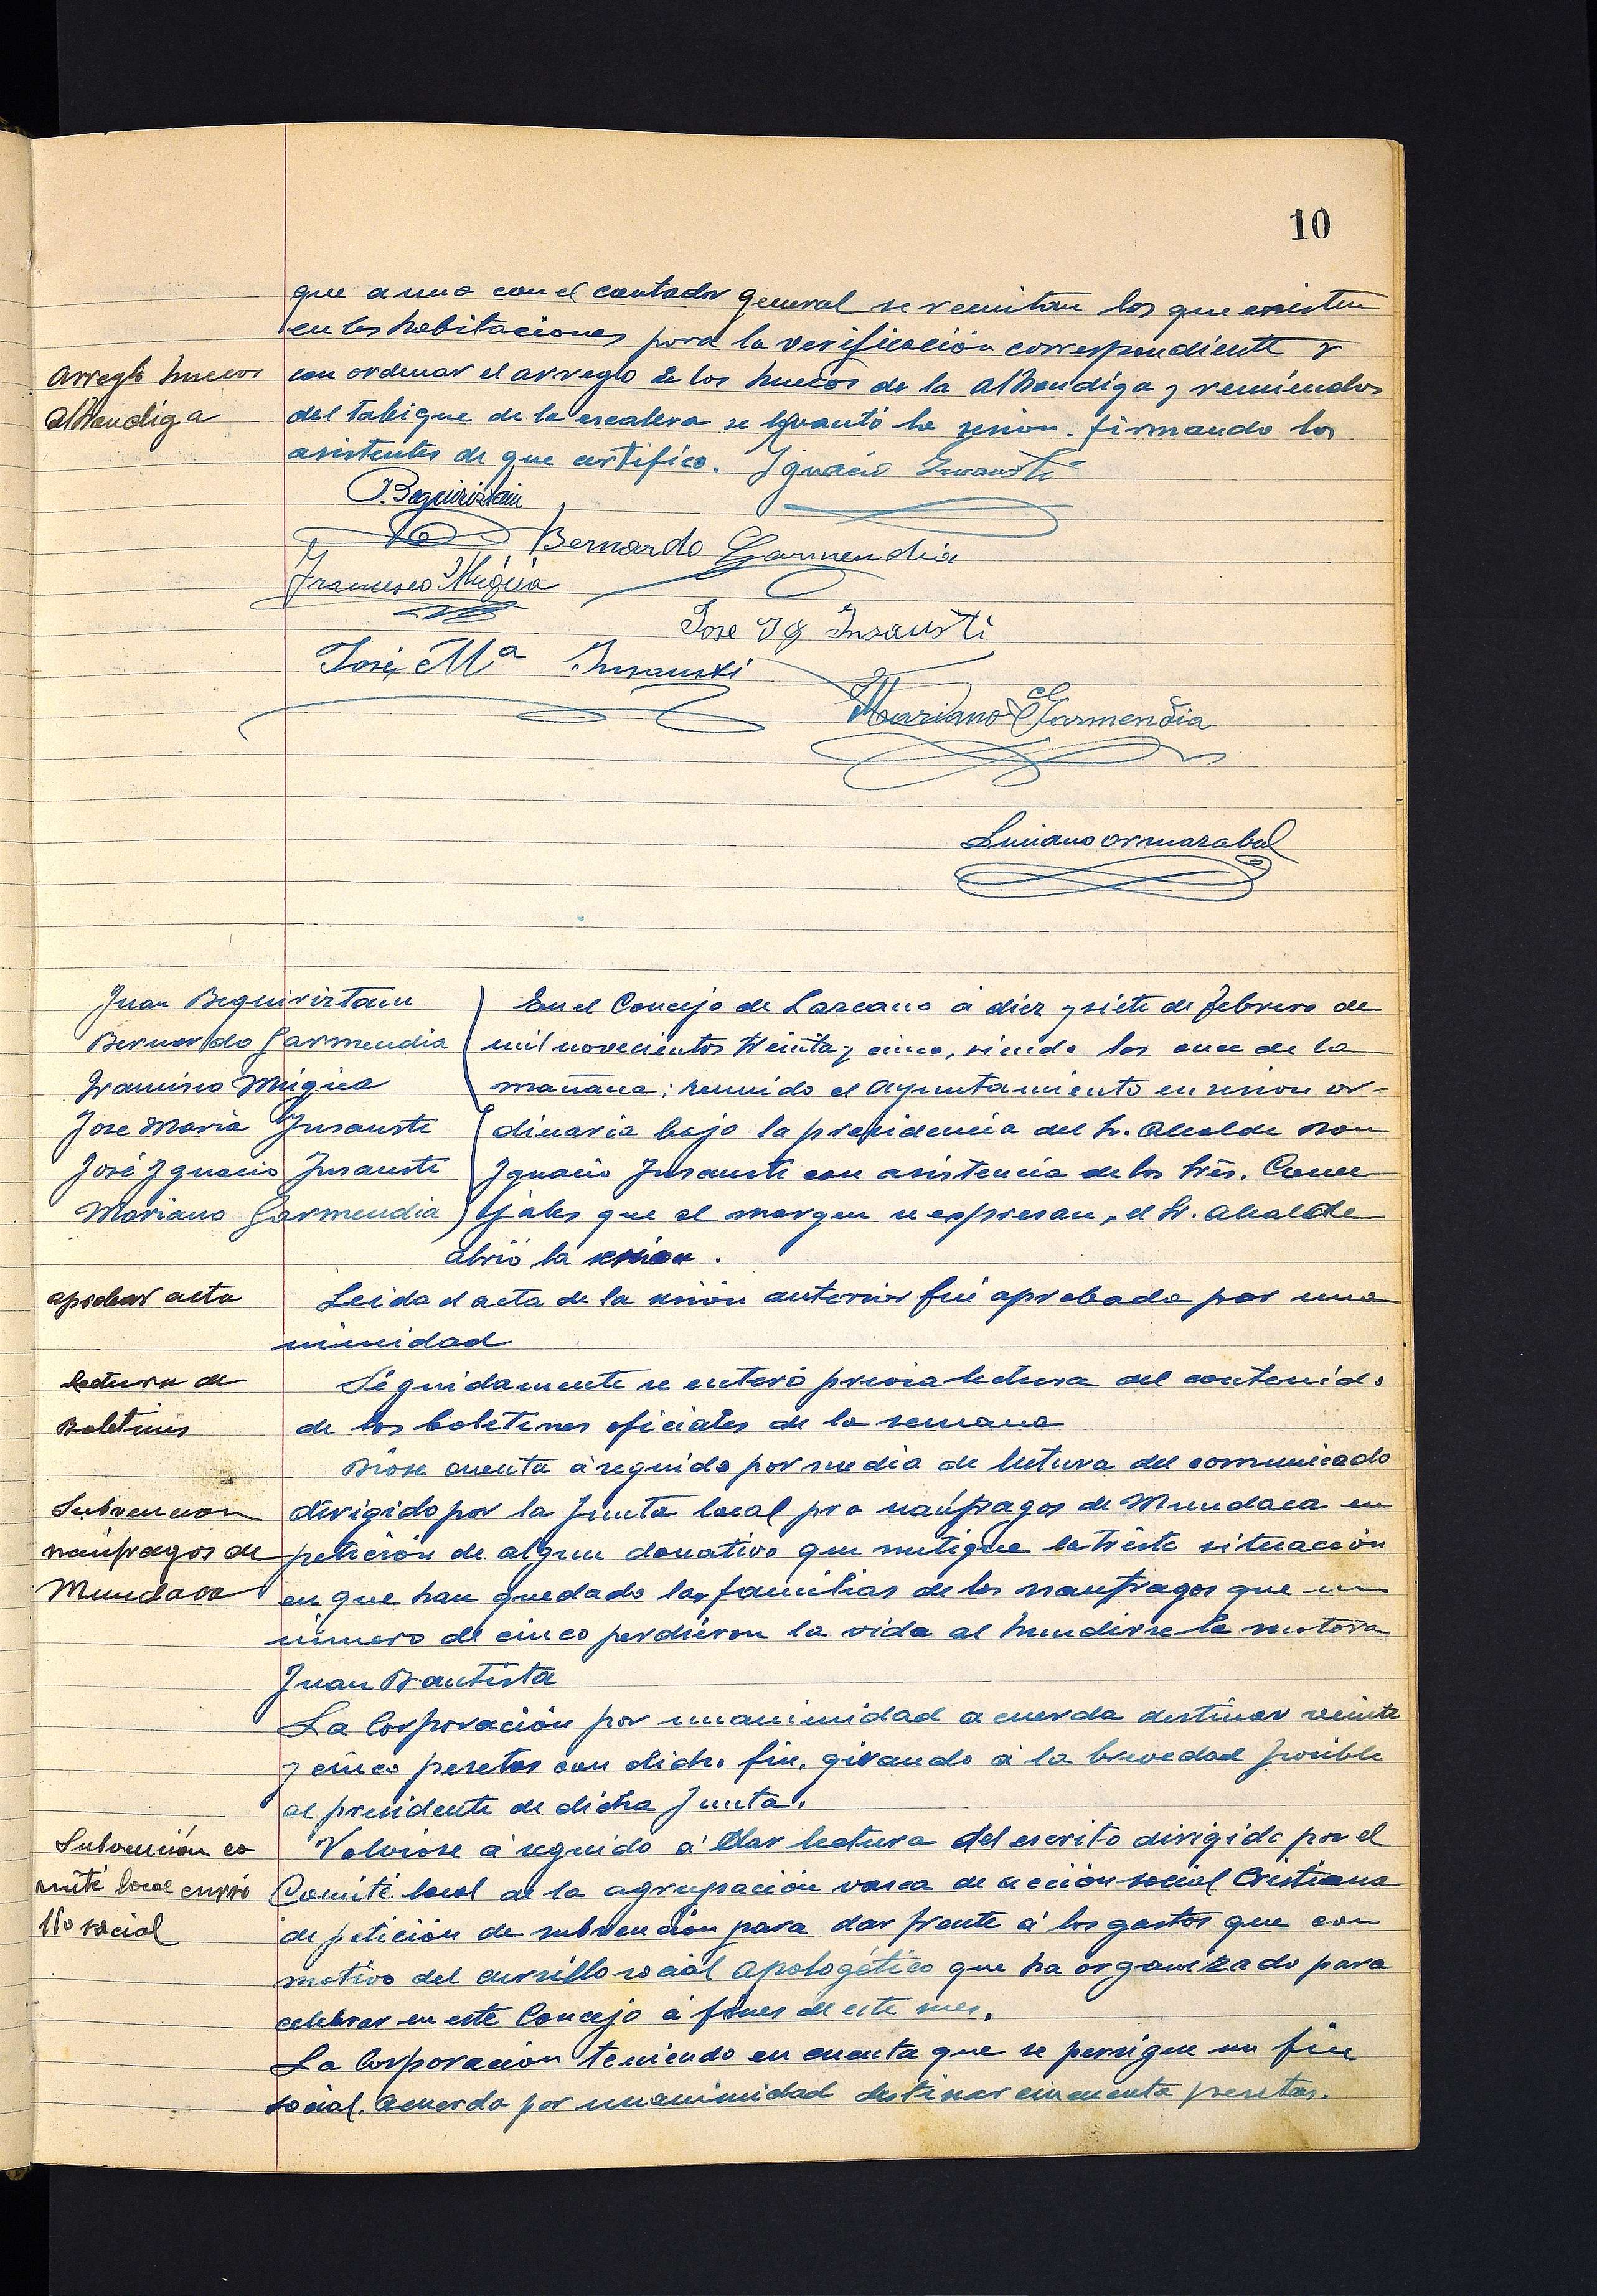 10
que a una con el contador general se remitan los que existen
en las habitaciones para la verificación correspondiente y
Arreglo huecos
Alhondiga
con ordenar el arreglo de los huecos de la Alhondiga y remiendos
del tabique de la escalera se levantó la sesion. firmando los
asistentes de que certifico. Ignacio Insausti
J. Beguiristain
Bernardo Garmendia
Francisco Múgica
Jose Ig Insausti
José Mª Insausti
Mariano Garmendia
Luciano Ormazabal
Juan Beguiristain
Bernardo Garmendia
Francisco Mugica
Jose Maria Insausti
José Ignacio Insausti
Mariano Garmendia
En el Concejo de Lazcano á diez y siete de febrero de
mil novecientos treinta y cinco, siendo las once de la
mañana: reunido el Ayuntamiento en sesion or-
dinaria bajo la presidencia del Sr. Alcalde Don
Ignacio Insausti con asistencia de los Sres. Conce
jales que al margen se expresan, el Sr. Alcalde
abrió la sesion.
aprobar acta
Leida el acta de la sesión anterior fué aprobada por una
nimidad
Lectura de
Boletines
Seguidamente se enteró previa lectura del contenido
de los boletines oficiales de la semana
Diose cuenta á seguido por media de lectura del comunicado
Subvencion
náufragos de
Mundaca
dirigido por la Junta local pro naúfragos de Mundaca en
petición de algun donativo que mitigue la triste situación
en que han quedado las familias de los naufragos que en
número de cinco perdieron la vida al hundirse la motora
Juan Bautista
La Corporación por unanimidad acuerda destinar veinte
y cinco pesetas con dicho fin, girando á la brevedad posible
al presidente de dicha Junta.
Subvención co
mité local cursi
llo social
Volviose á seguido á dar lectura del escrito dirigido por el
Comité local de la agrupación vasca de acción social Cristiana
de petición de subvención para dar frente á los gastos que con
motivo del cursillo social apologético que ha organizado para
celebrar en este Concejo á fines de este mes.
La Corporacion teniendo en cuenta que se persigue un fin
social. Acuerda por unanimidad destinar cincuenta pesetas.